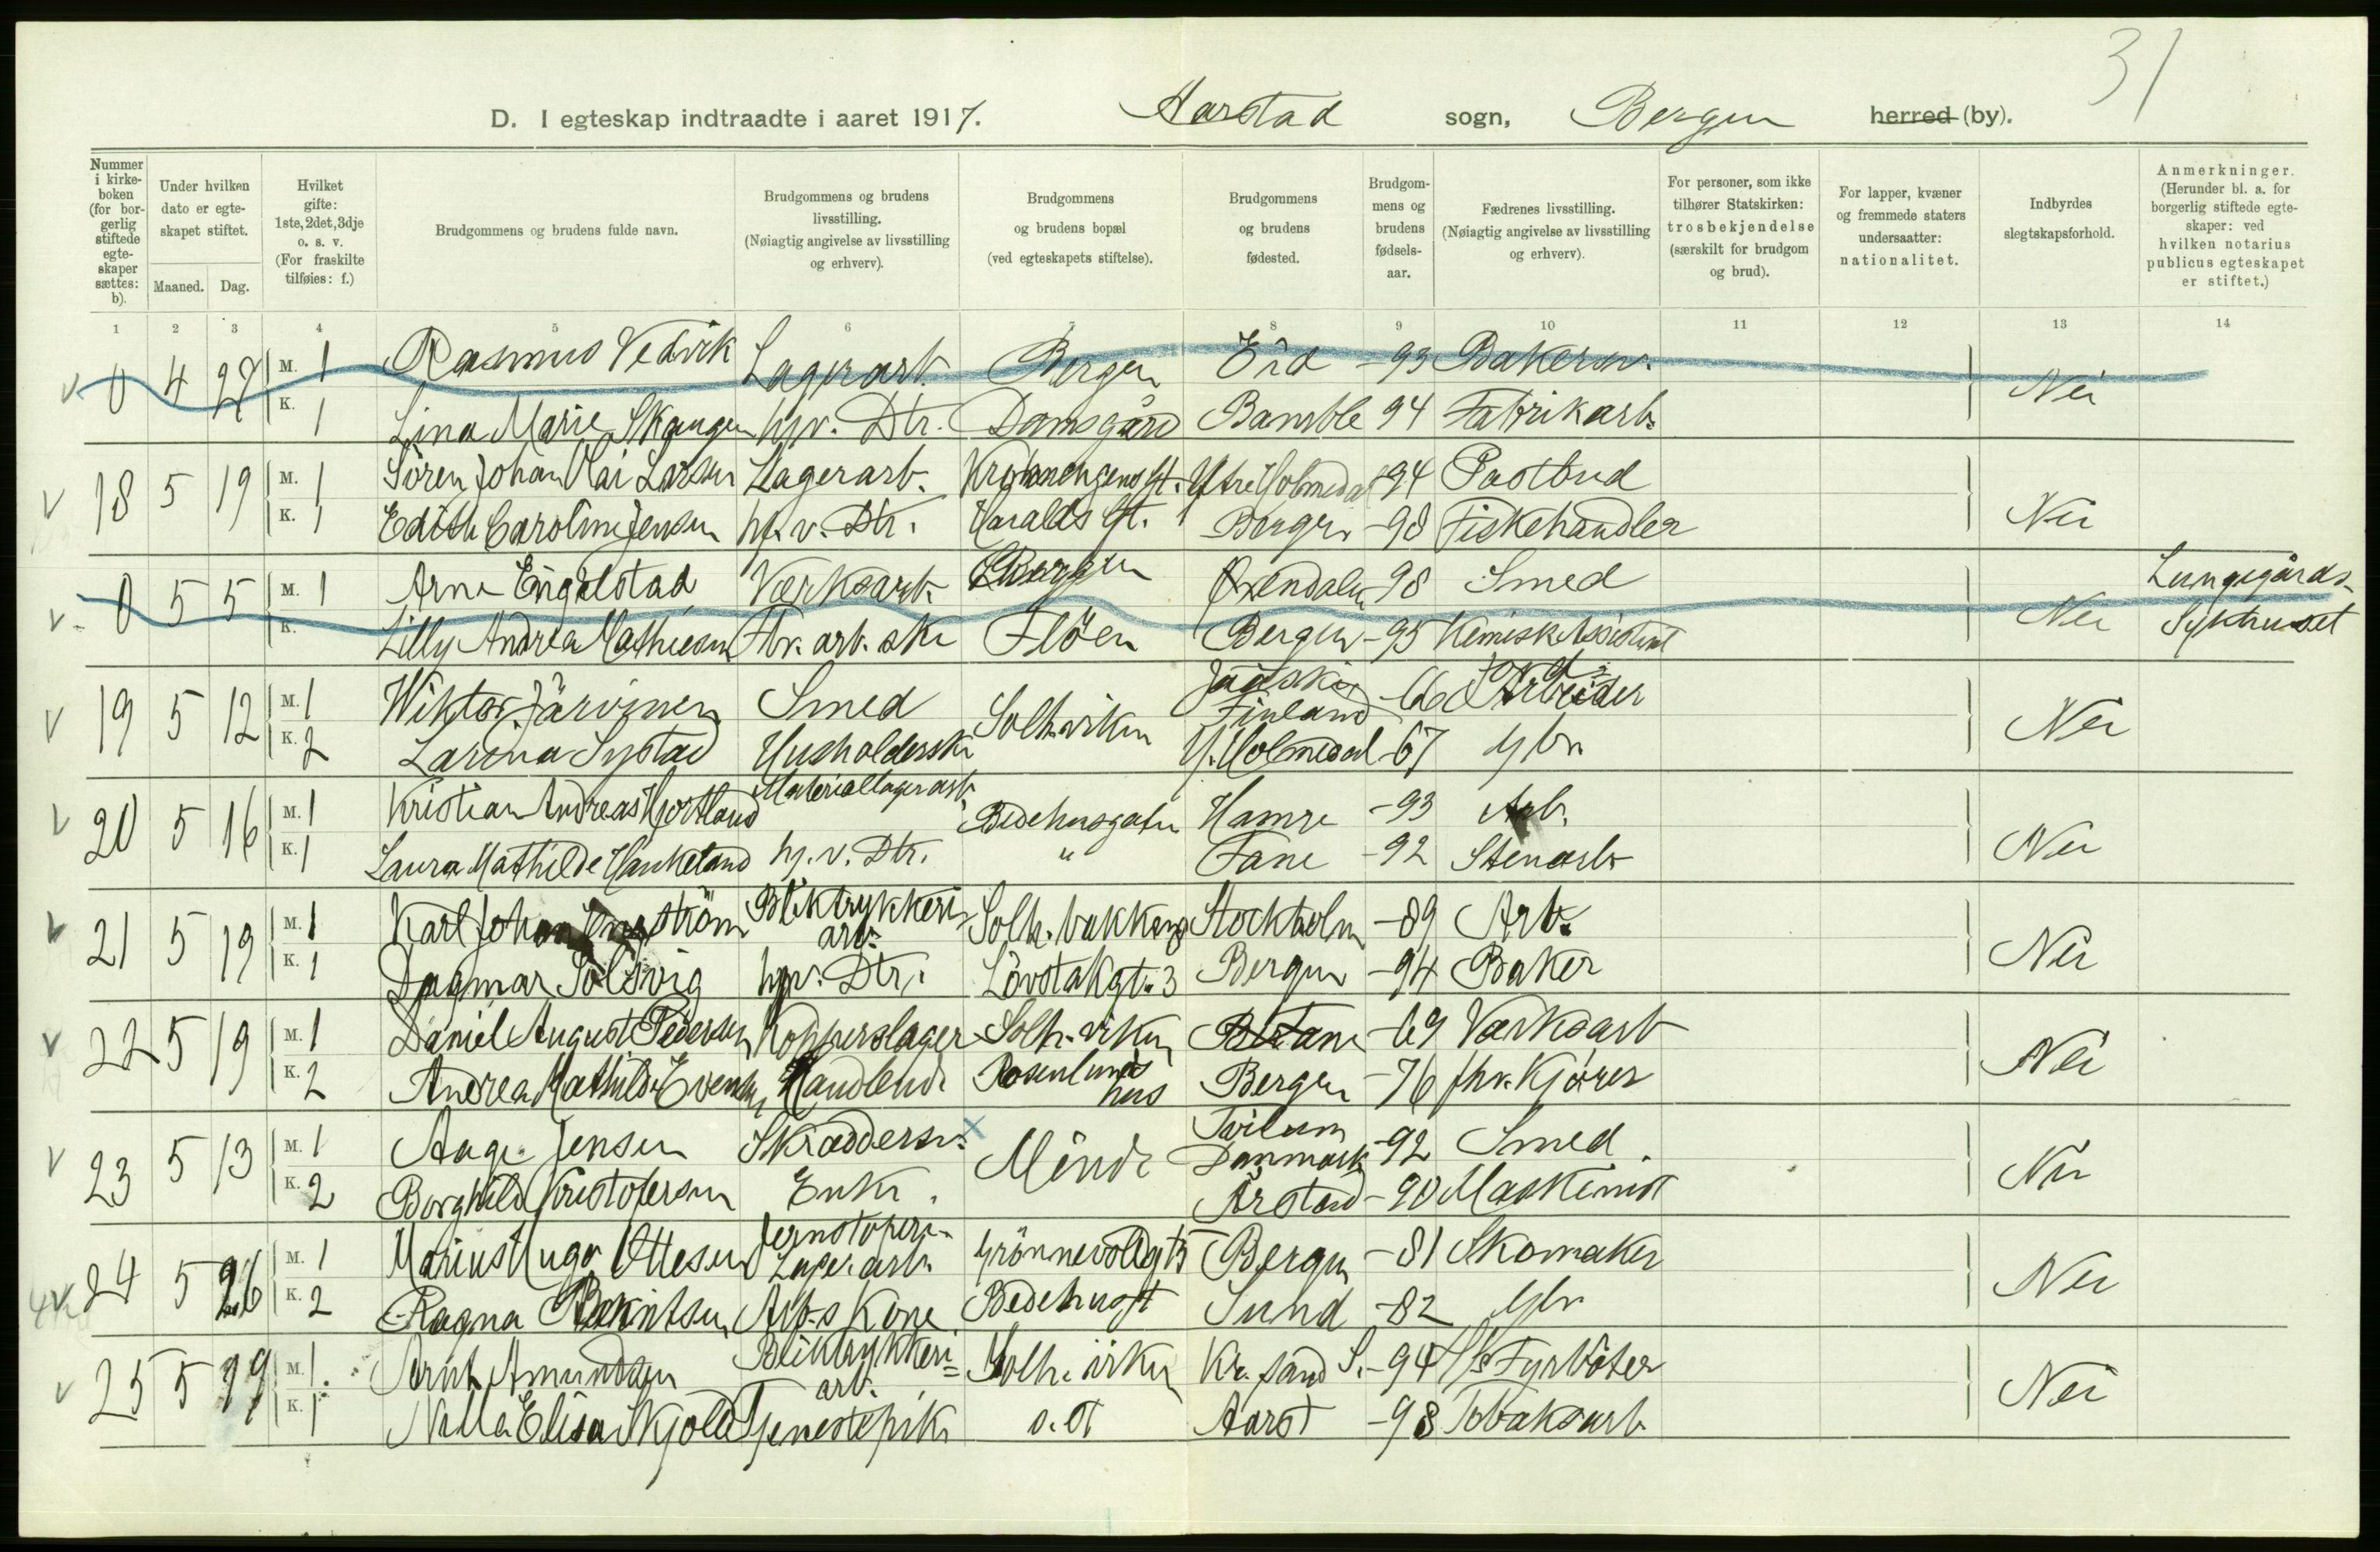 31
D. I egteskap indtraadte i aaret 1917. Aarstad sogn, Bergen herred (by).
Nummer i kirke-boken (for bor-gerlig stiftede egte-skaper sættes: b).
Under hvilken dato er egte-skapet stiftet.
Maaned. Dag.
Hvilket gifte: 1ste, 2det, 3dje o. s. v. (For fraskilte tilføies: f.)
Brudgommens og brudens fulde navn.
Brudgommens og brudens livsstilling. (Nøiagtig angivelse av livsstilling og erhverv).
Brudgommens og brudens bopæl (ved egteskapets stiftelse).
Brudgommens og brudens fødested.
Brudgom-mens og brudens fødsels-aar.
Fædrenes livsstilling. (Nøiagtig angivelse av livsstilling og erhverv).
For personer, som ikke tilhører Statskirken: trosbekjendelse (særskilt for brudgom og brud).
For lapper, kvæner og fremmede staters undersaatter: nationalitet.
Indbyrdes slegtskapsforhold.
Anmerkninger. (Herunder bl. a. for borgerlig stiftede egte-skaper: ved hvilken notarius publicus egteskapet er stiftet.)
1 2 3 4 5 6 7 8 9 10 11 12 13 14
v 0 4 27 M. 1 Rasmus Vedvik Lagerarb. Bergen Eid -93 Bakersv. Nei
K. 1 Lina Marie Skaugen hjv. Dtr. Damsgård Bamble 94 Fabrikarb.
v 18 5 19 M. 1 Sören Johan Olai Larsen Lagerarb. Kronenengens gt. Ytre Holmedal -94 Postbud Nei
K. 1 Edith Caroline Jensen hj. v. Dtr. Haralds gt. Bergen -98 Fiskehandler
v 0 5 5 M. 1 Arne Engelstad Verksarb. Bergen Öxendalen -98 Smed Nei Lungegårds-Sykehuset
K. Lilly Andrea Mathiesen Fbr. arb. ske Flöen Bergen -95 Kemisk Assistent
v 19 5 12 M. 1 Wiktor Järvinen Smed Solh.viken Jääski Finland -66 Arbeider Nei
K. 2 Larina Systad Husholderske Y. Holmedal -67 Gbr.
v 20 5 16 M. 1 Kristian Andreas Hjortland Materiallagerarb. Bedehusgaten Hamre -93 Arb. Nei
K. 1 Laura Mathilde Hauketand hj. v. Dtr. " Fane -92 Stenarb.
v 21 5 19 M. 1 Karl Johan Bliktrykkeri arb. Solh. bakken Stockholm -89 Arb. Nei
K. 1 Dagmar Solsvig hjv. Dtr. Lövstakgt. 3 Bergen -94 Baker
v 22 5 19 M. 1 Daniel August Pedersen Kopperslager Solh. viken Fane -69 Værksarb Nei
K. 2 Andrea Mathilde Evensen Handlende Rosenlunds hus Bergen -76 fhv. Kjörer
v 23 5 13 M. 1 Aage Jensen Skræddersv. x Minde Tvilum Danmark -92 Smed Nei
K. 2 Borghild Kristofersen Enke. Årstad -90 Maskinist
24 5 26 M. 1 Marius Hugo Ottesen Jernstöperi-Lager. arb. Grönnevoldgt 5 Bergen -81 Skomaker Nei
K. 2 Ragna Berntsen Arb.s Kone Bedehusgt Sund -82 Gbr
v 25 5 19 M. 1. Arnt Amundsen Bliktrykkeri = arb. Solh. viken Kr. sand S. -94 S/s Fyrböter Nei
K. 1 Nella Elisa Skjold Tjenestepike s. st Aarst -98 Tobaksarb.